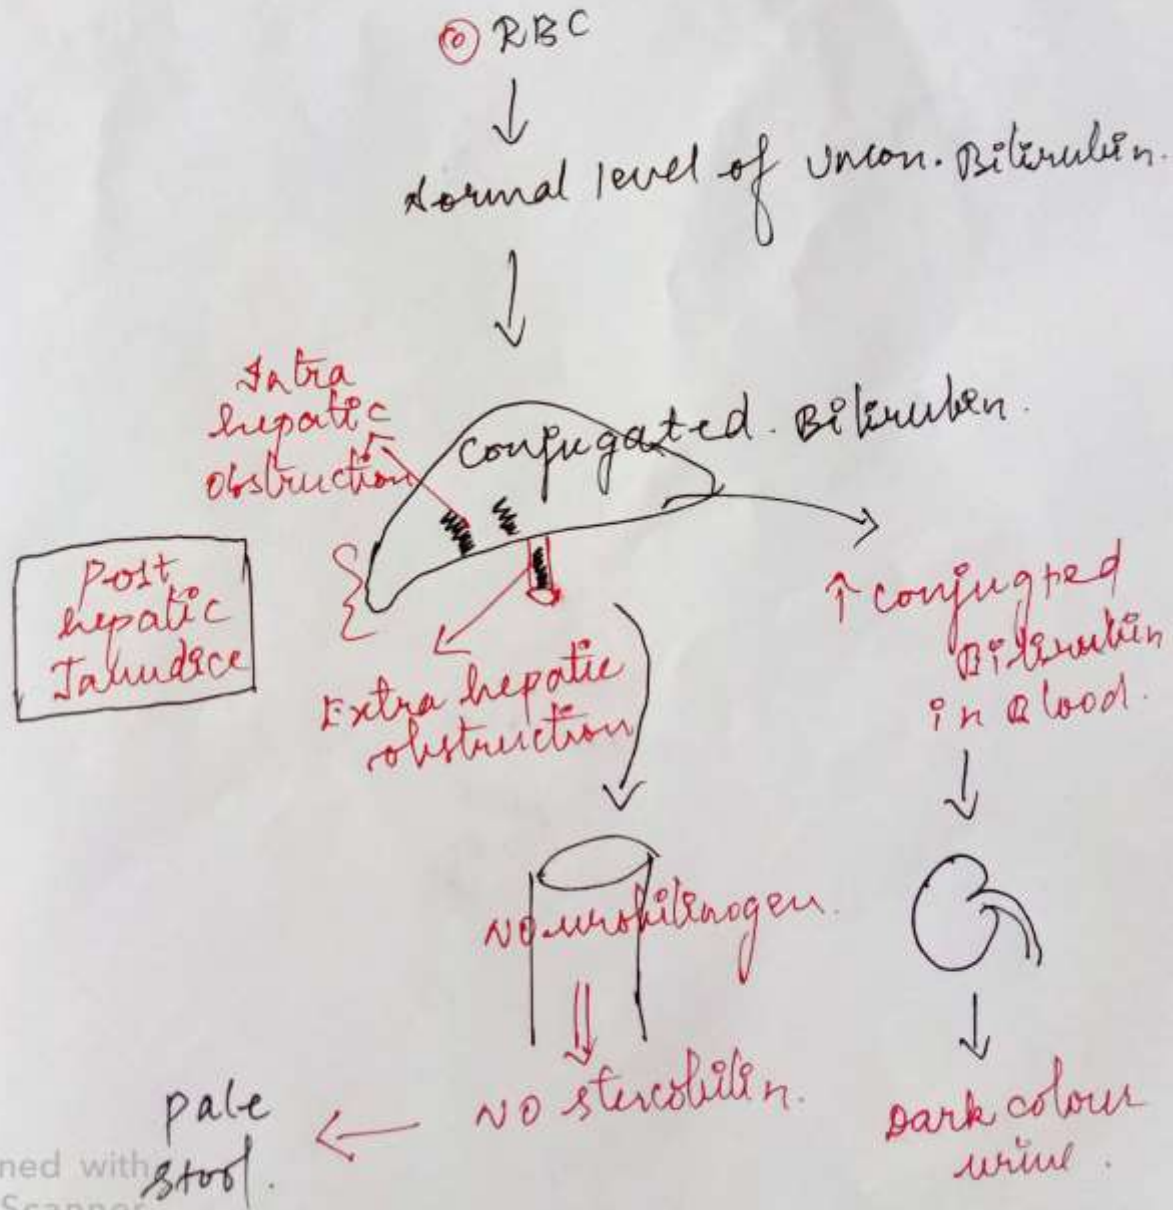 RBC
Normal level of Uncon. Bilirubin.
Intra
hepatic
obstruction
Conjugated. Bilirubin.
Post
hepatic
Jaundice
Extra hepatic
obstruction
↑ conjugted
Bilirubin
in Blood.
NO urobilinogen.
NO stercobilin.
pale
stool.
Dark colour
urine.
ned with
Scanner